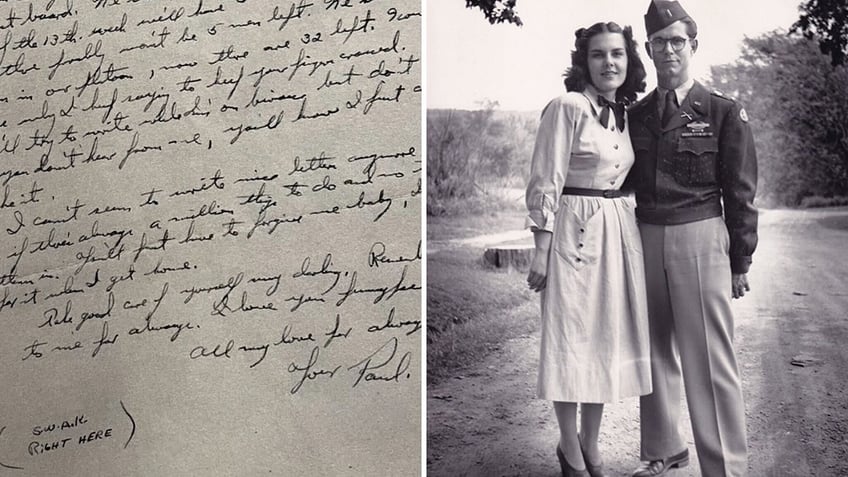 board.
of the 13th. week we'll have 5
there finally won't be 5 men left.
in our platoon, now there are 32 left.
why I keep saying to keep your fingers crossed.
try to write while on bivouac but don't
you don't hear from me, you'll know I just
it.
I can't seem to write nice letters anymore
if there's always a million things to do and no
them in. You'll just have to forgive me baby, I
for it when I get home.
Take good care of yourself my darling. Remem
to me for always. I love you funny face
All my love for always
Your Paul.
(S.W.A.K.
RIGHT HERE)